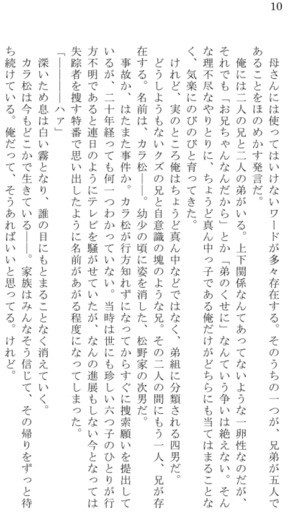 10
母さんには使ってはいけないワードが多々存在する。そのうちの一つが、兄弟が五人で
あることをほのめかす発言だ。
俺には二人の兄と二人の弟がいる。上下関係なんてあってないような一卵性なのだが、
それでも「お兄ちゃんなんだから」とか「弟のくせに」なんていう争いは絶えない。そん
な理不尽なやりとりに、ちょうど真ん中っ子である俺だけがどちらにも当てはまることな
く、気楽にのびのびと育ってきた。
けれど、実のところ俺はちょうど真ん中などではなく、弟組に分類される四男だ。
どうしようもないクズの兄と自意識の塊のような兄。その二人の間にもう一人、兄が存
在する。名前は、カラ松――。幼少の頃に姿を消した、松野家の次男だ。
事故か、はたまた事件か。カラ松が行方知れずになってからすぐに捜索願いを提出して
いるが、二十年経っても何一つわかっていない。当時は世にも珍しい六つ子のひとりが行
方不明であると連日のようにテレビを騒がせていたが、なんの進展もしない今となっては
失踪者を捜す特番で思い出したように名前があがる程度になってしまった。
「――――――ハァ」
深いため息は白い霧となり、誰の目にもとまることなく消えていく。
カラ松は今もどこかで生きている――。家族はみんなそう信じて、その帰りをずっと待
ち続けている。俺だって、そうあればいいと思ってる、けれど。